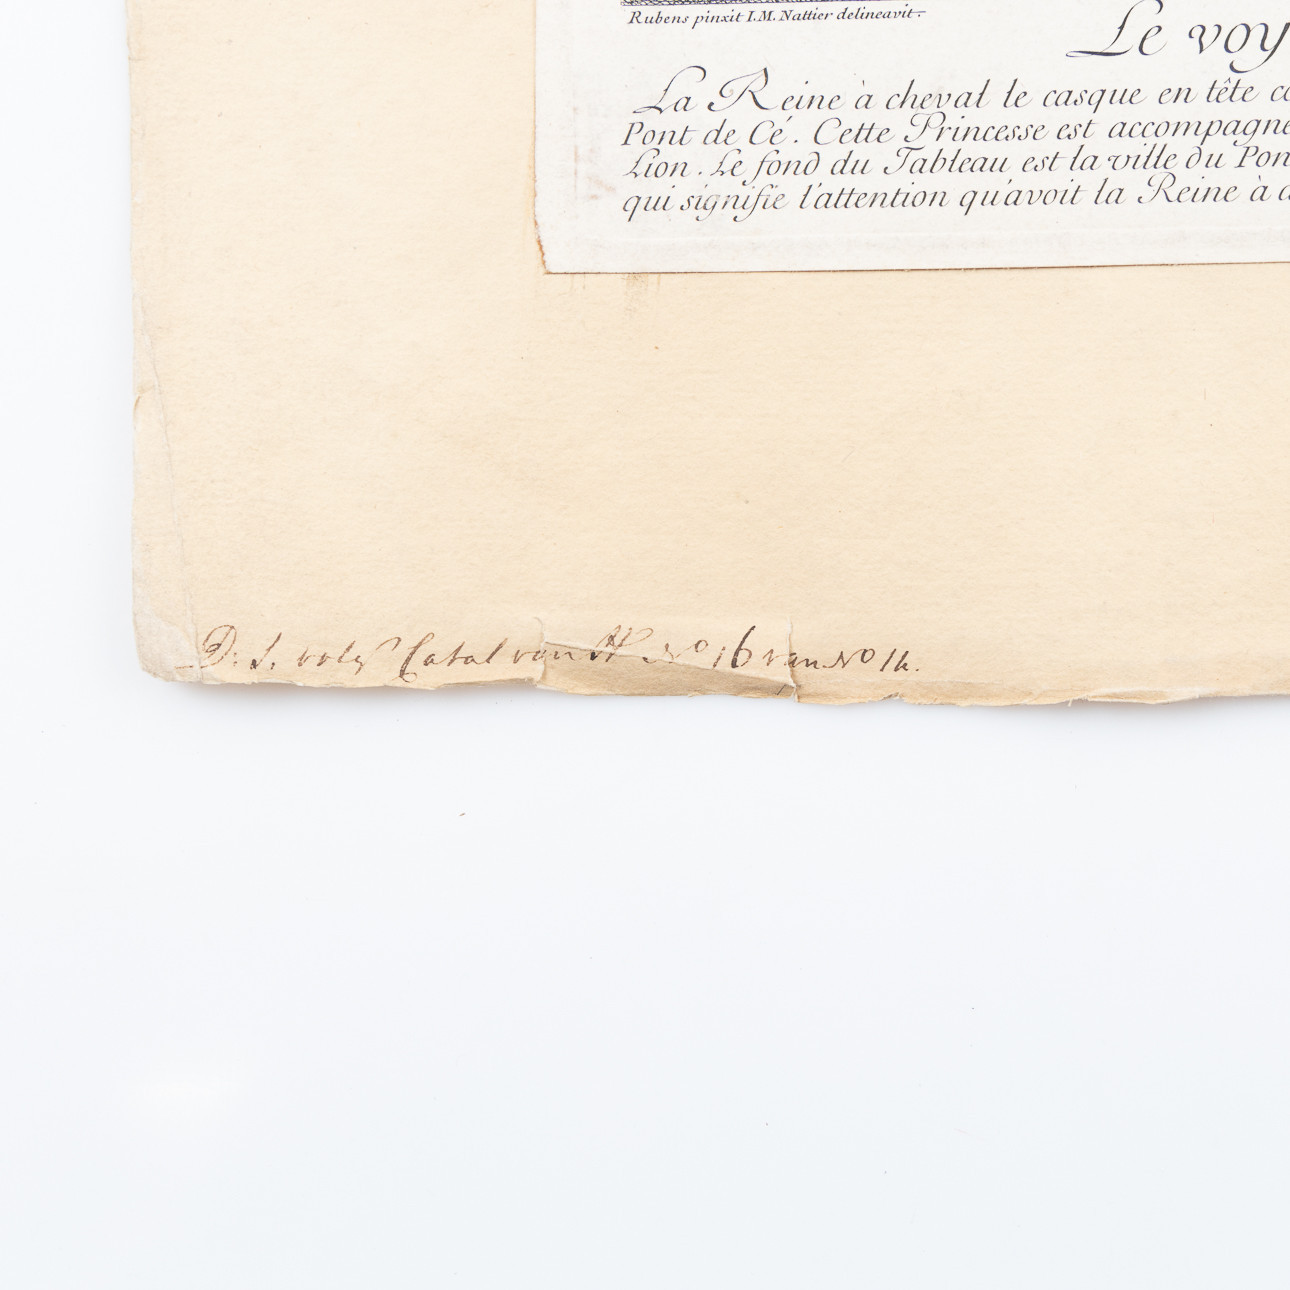 Rubens pinxit I.M. Nattier delineavit.
Le voy
La Reine à cheval le casque en tête co
Pont de Cé. Cette Princesse est accompagne
Lion. Le fond du Tableau est la ville du Pon
qui signifie l'attention qu'avoit la Reine à
D: 1. volgs Catal van No 16 van No 14.